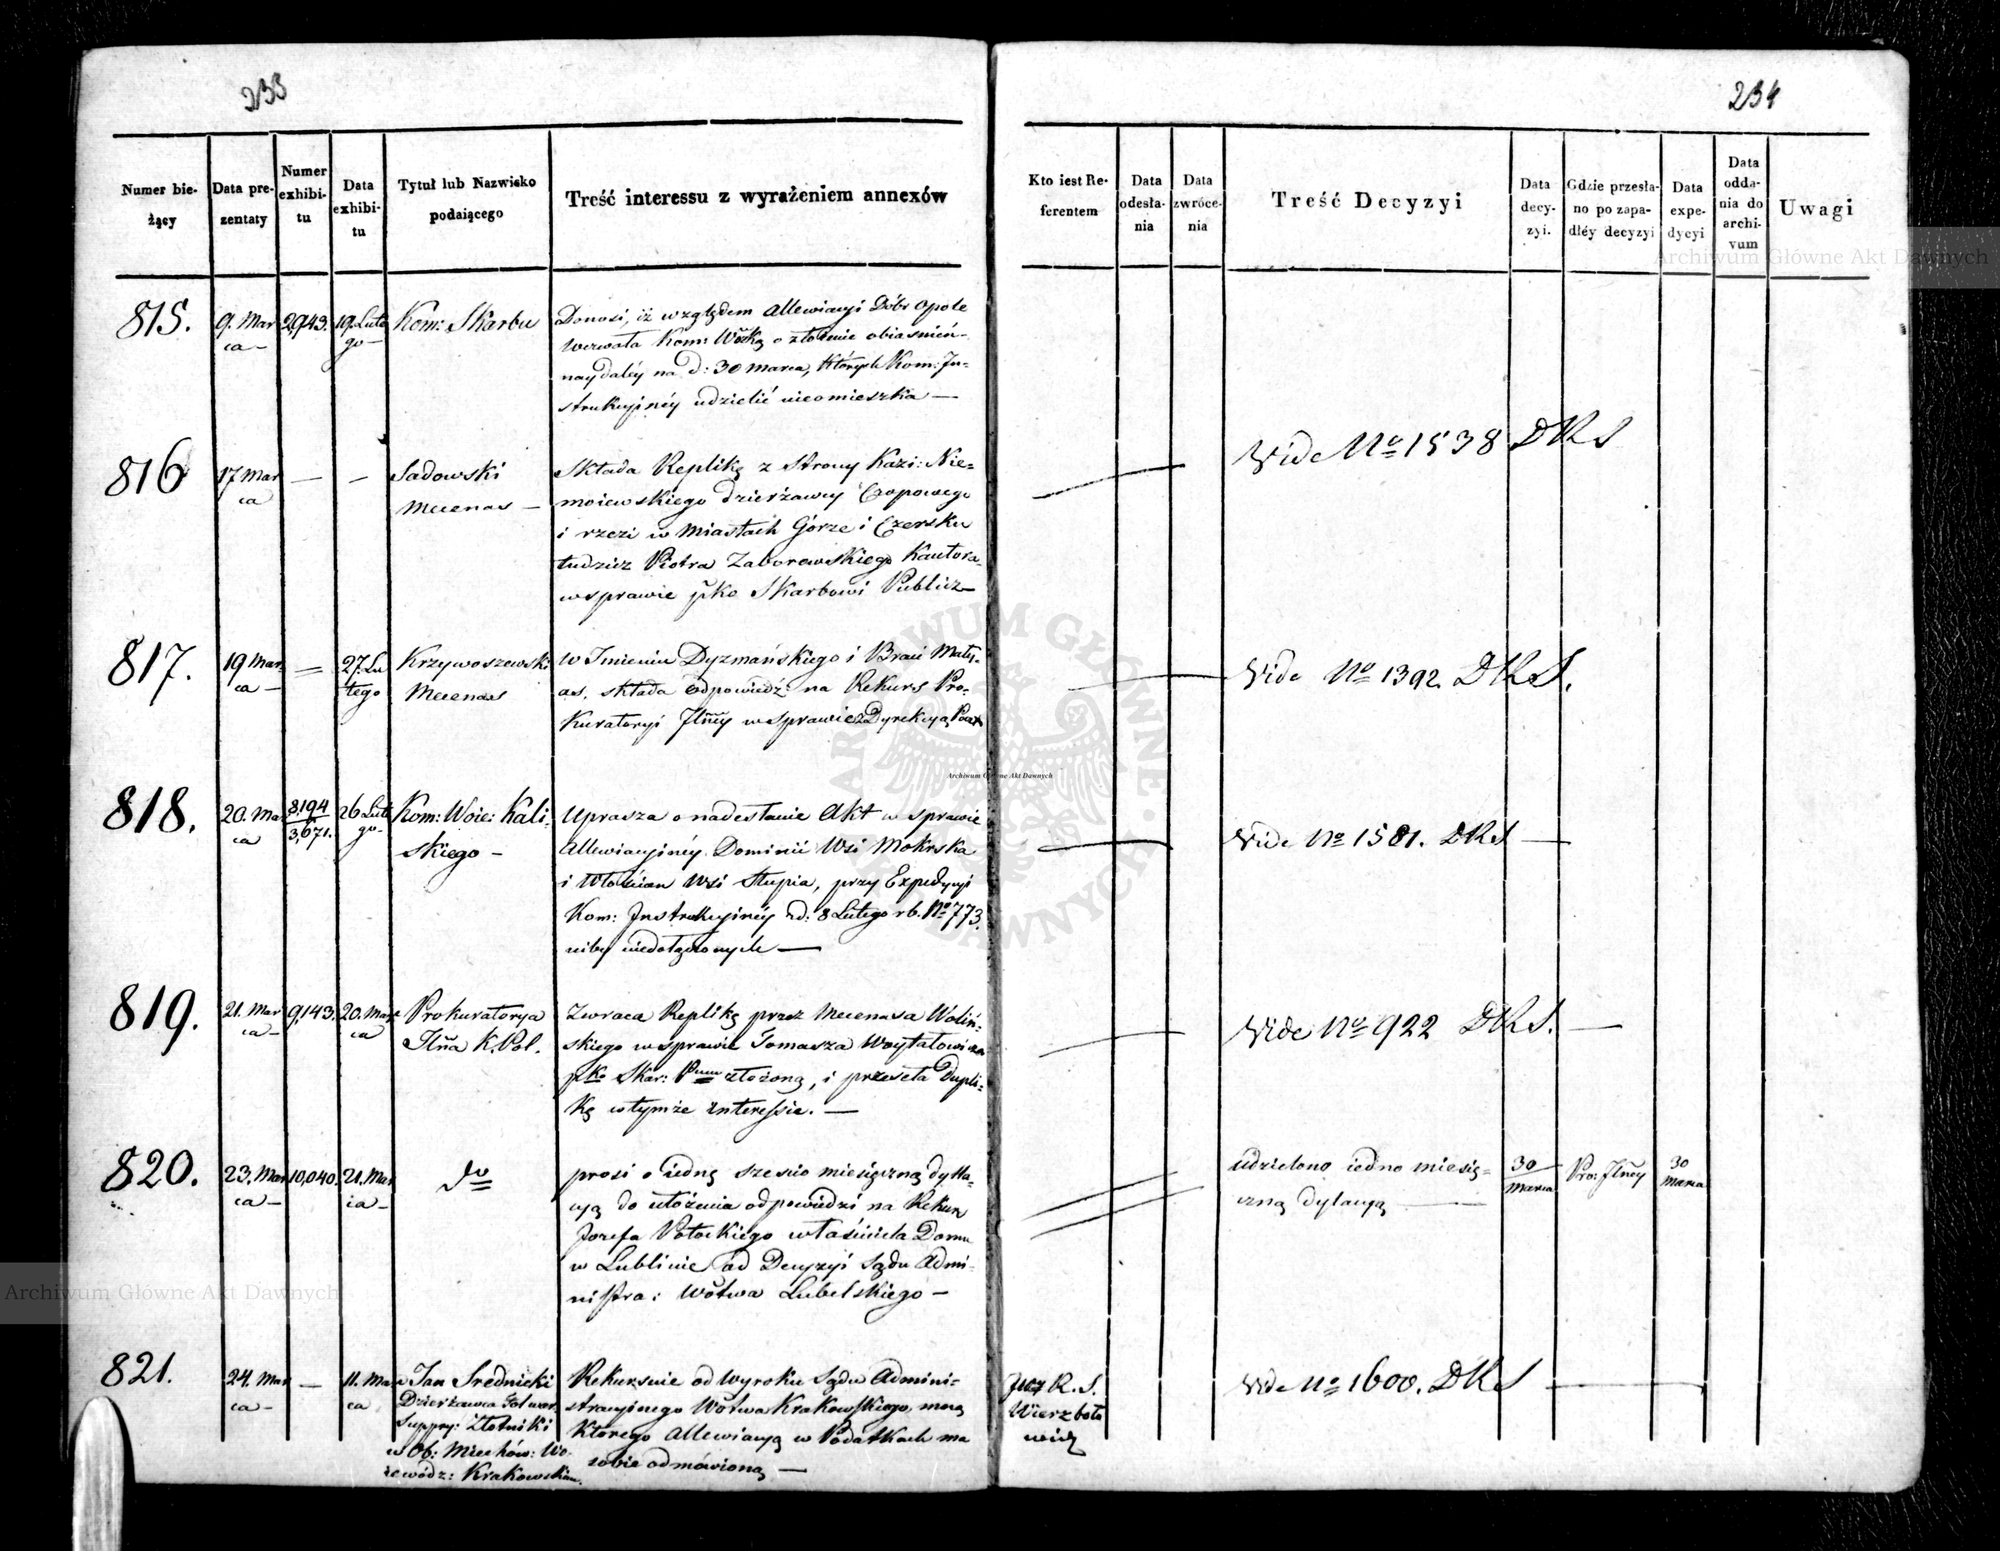 233
234
Numer bie-
żący
Data pre-
zentaty
Numer
exhibi-
tu
Data
exhibi-
tu
Tytuł lub Nazwisko
podaiącego
Treść interessu z wyrażeniem annexów
Kto iest Re-
ferentem
Data
odesła-
nia
Data
zwróce-
nia
Treść Decyzyi
Data
decy-
zyi.
Gdzie przesła-
no po zapa-
dłéy decyzyi
Data
expe-
dycyi
Data
odda-
nia do
archi-
vum
Uwagi
815.
9. Mar
ca —
2,943.
19. Lute
go —
Kom: Skarbu
Donosi, iż względem allewiacyi Dóbr Opole
wezwała Kom: Wdzką o złożenie obiaśnień
naydaléy na d: 30 marca, których Kom: In-
strukcyjnéy udzielić nieomieszka —
816
17 Mar
ca
—
—
Sadowski
Mecenas —
Składa Replikę z Strony Kazi: Nie-
moiewskiego dzierżawcy Czopowego
i rzezi w Miastach Górze i Czersku
tudzież Piotra Zaborowskiego Kautora
w sprawie pko Skarbowi Publicz—
Vide No 1538 DKS
817.
19 Mar
ca —
—
27. Lu
tego
Krzywoszewski
Mecenas
W Imieniu Dyzmańskiego i Braci Maty-
as. składa odpowiedź na Rekurs Pro-
kuratoryi Jlney w sprawie z Dyrekcyą Poczt
Vide No 1392. DKS.
818.
20. Ma
ca
8194
3,671.
26 Lute
go —
Kom: Woie: Kali-
skiego —
Uprasza o nadesłanie Akt w sprawie
Allewiacyjnéy Dominii Wsi Mokrska
i Włościan Wsi Słupia, przy Expedycyi
Kom: Instrukcyjnéy z d: 8 Lutego r.b. No 773.
niby niedołączonych —
Vide No 1581. DKS —
819.
21. Mar
ca —
9,143.
20. Mar
ca
Prokuratorya
Jlna K. Pol.
Zwraca Replikę przez Mecenasa Woliń-
skiego w sprawie Tomasza Woytatowicza
pko Skar: Pmu złożoną, i przeseła Dupli-
kę w tymże interessie. —
Vide No 922 DKS. —
820.
23. Mar
ca —
10,040.
21. Mar
ca —
do
prosi o iedną szescio miesięczną dylla-
cyą do ułożenia odpowiedzi na Rekurs
Jozefa Potockiego właściciela Domu
w Lublinie od Decyzyi Sądu Admi-
nistra: Wodtwa Lubelskiego —
udzielono iedno miesię-
czną dylacyą —
30
marca
Pro: Jlney
30
marca
821.
24. Mar
ca —
—
11. Mar
ca
Jan Srednicki
Dzierżawca Folwar:
Suppry: Złotniki
w Ob: Miechów: Wo-
iewódz: Krakowskim
Rekursuie od Wyroku Sądu Admini-
stracyinego Wodtwa Krakowskiego, mocą
którego allewiacyą w Podatkach ma
sobie odmówioną —
R. S.
Wierzboło
wicz
Vide No 1600. DKS —
Archiwum Główne Akt Dawnych
Archiwum Główne Akt Dawnych
Archiwum Główne Akt Dawnych
ARCHIWUM GŁÓWNE AKT DAWNYCH